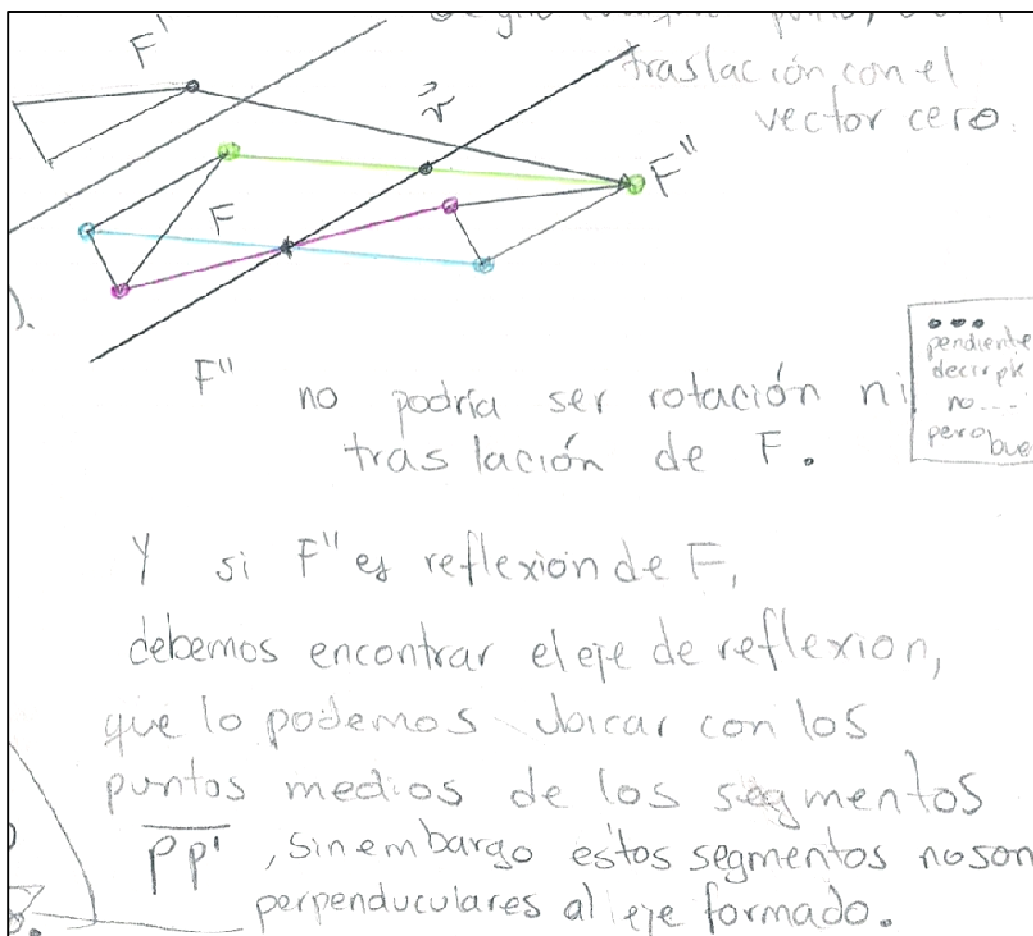 traslación con el
vector cero.
F'
v
F"
F
).
F" no podría ser rotación ni
traslación de F.
pendiente
decir pk
no...
pero bue
Y si F" es reflexión de F,
debemos encontrar el eje de reflexion,
que lo podemos ubicar con los
puntos medios de los segmentos
PP' , sin embargo estos segmentos no son
perpenduculares al eje formado.